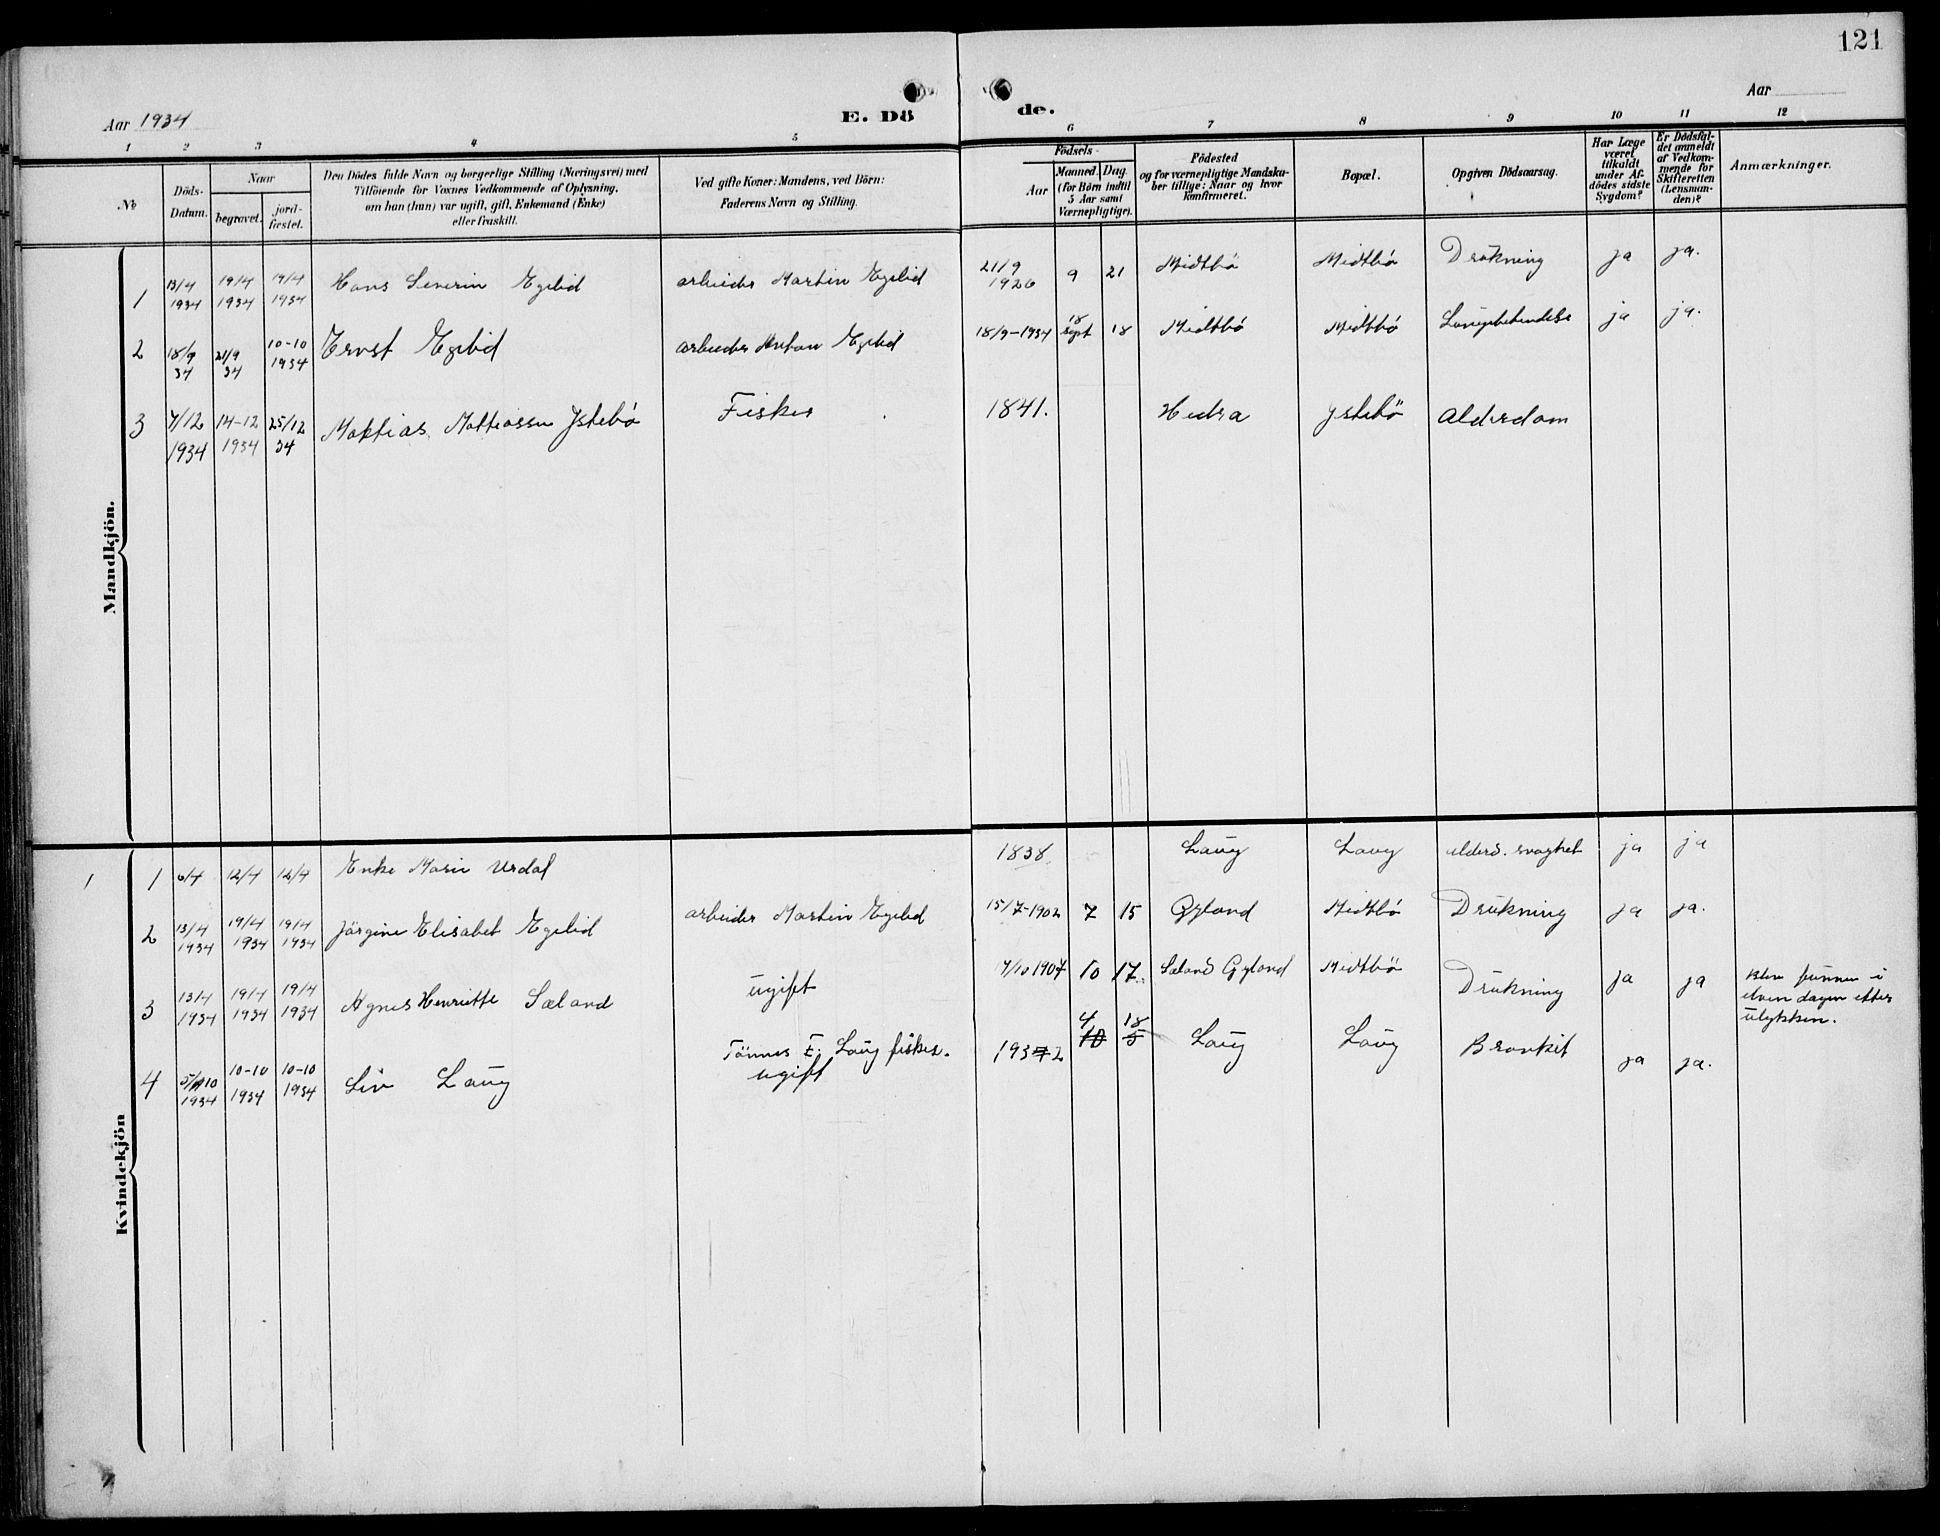 121
Aar 1934
E. Dö
de.
Aar
1 2 3 4 5 6 7 8 9 10 11 12
№
Döds-
Datum.
Naar
begravet.
jord-
fæstet.
Den Dödes fulde Navn og borgerlige Stilling (Næringsvei) med
Tilföiende for Voxnes Vedkommende af Oplysning,
om han (hun) var ugift, gift, Enkemand (Enke)
eller fraskilt.
Ved gifte Koner: Mandens, ved Börn:
Faderens Navn og Stilling.
Födsels-
Aar
Maaned. Dag.
(for Börn indtil
5 Aar samt
Værnepligtige).
Födested
og for værnepligtige Mandska-
ber tillige: Naar og hvor
konfirmeret.
Bopæl.
Opgiven Dödsaarsag.
Har Læge
været
tilkaldt
under Af-
dödes sidste
Sygdom?
Er Dödsfal-
det anmeldt
af Vedkom-
mende for
Skifteretten
(Lensman-
den)?
Anmærkninger.
Mandkjön.
1 13/4 1934 19/4 1934 19/4 1934 Hans Severin Egelid arbeider Martin Egelid 21/9 1926 9 21 Midtbö Midtbö Drukning ja ja.
2 18/9 34 21/9 34 10-10 1934 Ernst Egelid arbeider Anton Egelid 18/9-1934 18 sept 18 Midtbö Midtbö ja ja.
3 7/12 1934 14-12 1934 25/12 34 Mattias Mattiassen Ystebö Fisker 1841. Hidra Ystebö Alderdom
Kvindekjön
1 1 6/4 12/4 12/4 Enke Marie Urdal 1838. Laug Laug alderd. svaghet ja ja
2 13/4 1934 19/4 1934 19/4 1934 Jörgine Elisabet Egelid arbeider Martin Egelid 15/7-1902 7 15 Gyland Midtbö Drukning ja ja.
3 13/4 1934 19/4 1934 19/4 1934 Agnes Henriette Sæland ugift 17/10 1907 10 17. Sæland Gyland Midtbö Drukning ja ja Blev funnen i
elven dagen etter
ulykken.
4 5/10 1934 10-10 1934 10-10 1934 Liv Laug Tönnes E. Laug fisker.
ugift 1932 4 10 18 5 Laug Laug Bronkit ja ja.